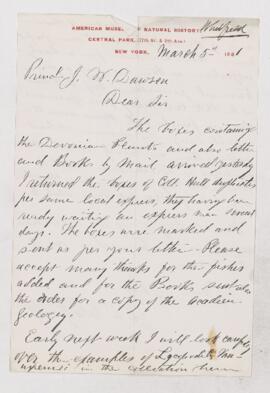 Whitfield
AMERICAN MUSEUM OF NATURAL HISTORY,
CENTRAL PARK, (77th St. & 8th Ave.)
NEW YORK, March 5th 1881
Princ. J. W. Dawson
Dear Sir
The boxes containing
the Devonian Plants and also letter
and Books by Mail arrived yesterday
I returned the boxes of Coll. Hall duplicates
per same local express, they having been
ready waiting an express man several
days. The boxes were marked and
sent as per your letter. Please
accept many thanks for the fishes
added and for the Books sent also
the order for a copy of the Acadian
Geology.
Early next week I will look carefully
over the examples of
in the collection here